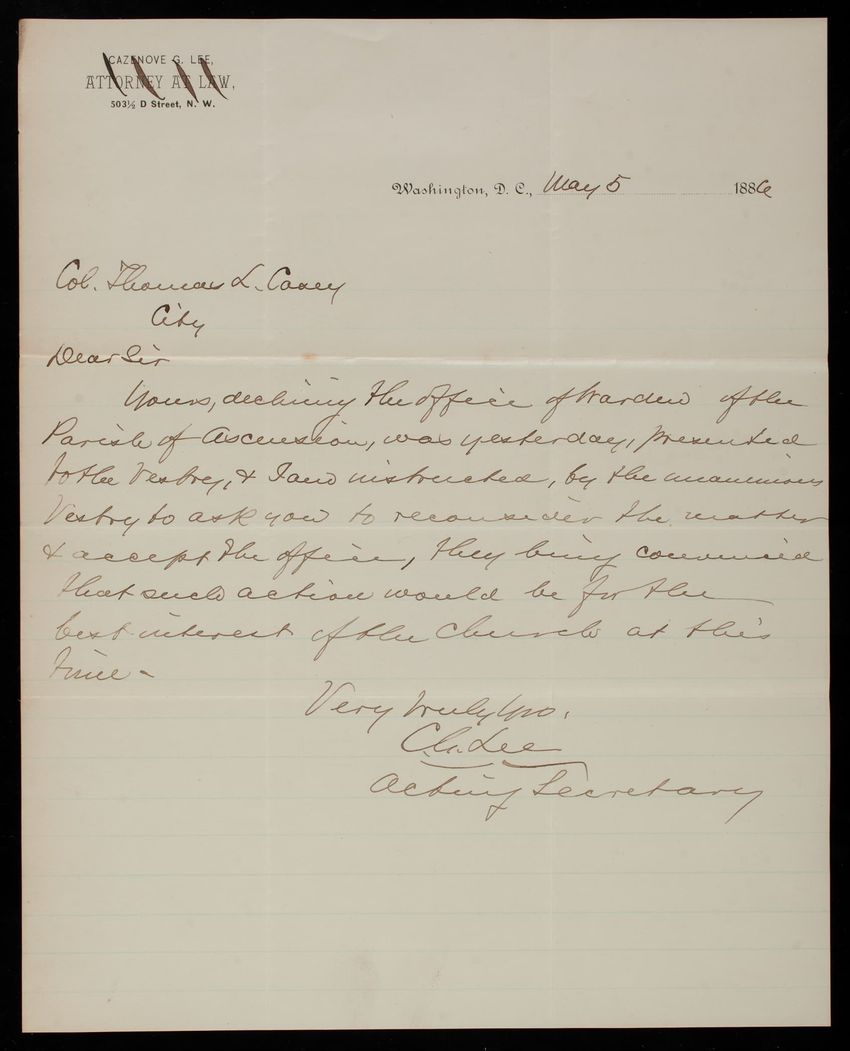 CAZENOVE G. LEE,
ATTORNEY AT LAW,
503½ D Street, N. W.
Washington, D. C., May 5 1886
Col. Thomas L. Casey
City
Dear Sir
Yours, declining the office of Warden of the
Parish of Ascension, was yesterday, presented
to the Vestry, & I am instructed, by the unanimous
Vestry to ask you to reconsider the matter
& accept the office, they being convinced
that such action would be for the
best interest of the church at this
time -
Very truly yrs.
C. G. Lee
Acting Secretary